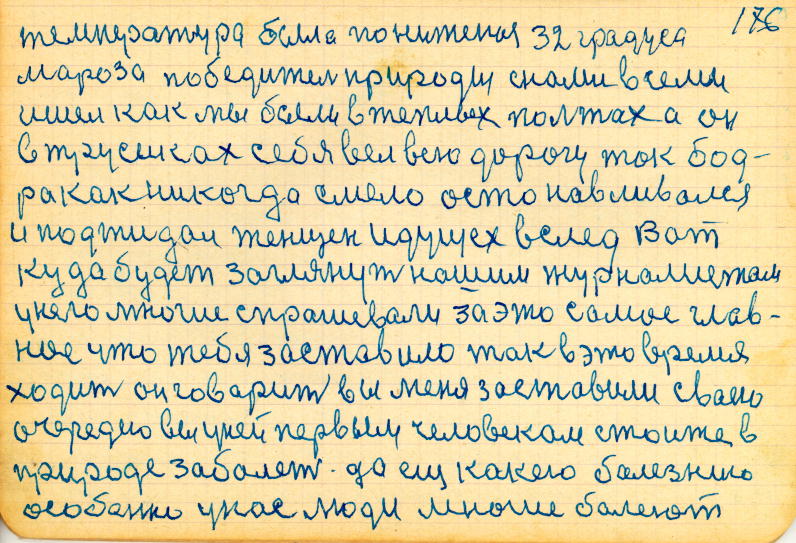 176
температура была пониженоя 32 градуса
мароза победител природы снами всеми
ишел как мы были втеплых полтах а он
втрусиках себя вел всю дорогу так бод-
ра как никогда смело осто навливался
и поджидал женщен идущех вслед Вот
куда будет заглянут нашим журналистам
унего многие спрашевали за это самое глав-
ное что тебя заставило так вэто время
ходит он говарит вы меня заставили сваею
очередю вы уней первым человекам стоите в
природе заболет да ещ какою болезнию
особенно унас люди многие болеют